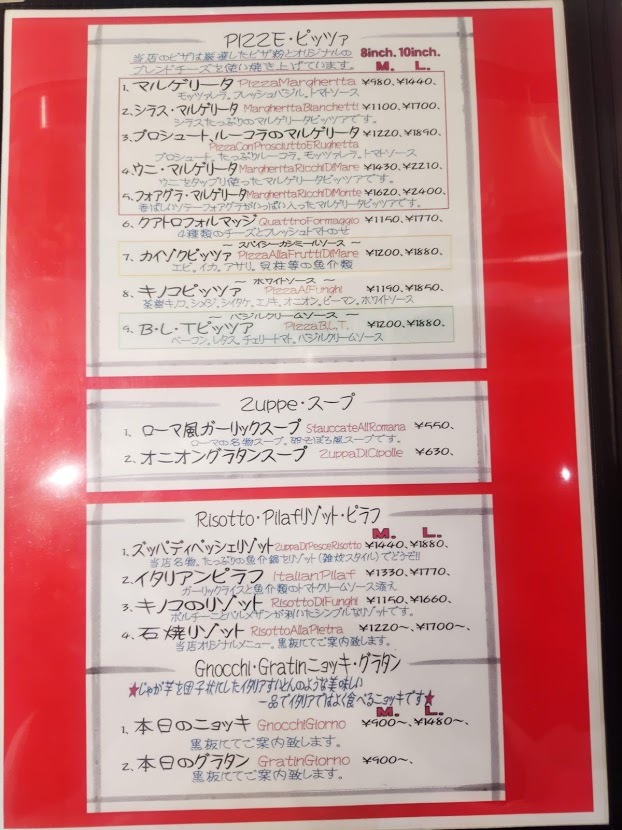 PIZZE・ピッツァ
当店のピザは厳選したピザ粉とオリジナルの 8inch. 10inch.
ブレンドチーズを使い焼き上げています。 M. L.
1. マルゲリータ PizzaMargherita ¥980、¥1440、
モッツァレラ。フレッシュバジル。トマトソース
2. シラス・マルゲリータ MargheritaBianchetti ¥1100、¥1700、
シラスたっぷりのマルゲリータピッツァです。
3. プロシュート、ルーコラのマルゲリータ ¥1220、¥1890、
PizzaConProsciuttoERughetta
プロシュート。たっぷりルーコラ。モッツァレラ。トマトソース
4. ウニ・マルゲリータ MargheritaRicchiDiMare ¥1430、¥2210、
ウニをタップリ使ったマルゲリータピッツァです。
5. フォアグラ・マルゲリータ MargheritaRicchiDiMonte ¥1620、¥2400、
香ばしいソテーフォアグラがいっぱい入ったマルゲリータピッツァです。
6. クアトロフォルマッジ QuattroFormaggio ¥1150、¥1770、
4種類のチーズとフレッシュトマトのせ
〜 スパイシーカシミールソース 〜
7. カイゾクピッツァ PizzaAllaFruttiDiMare ¥1200、¥1880、
エビ。イカ。アサリ。貝柱等の魚介類
〜 ホワイトソース 〜
8. キノコピッツァ PizzaAiFunghi ¥1190、¥1850、
茶樹キノコ。シメジ。シイタケ。エノキ。オニオン。ピーマン。ホワイトソース
〜 バジルクリームソース 〜
9. B・L・Tピッツァ PizzaB.L.T. ¥1200、¥1880、
ベーコン。レタス。チェリートマト。バジルクリームソース
Zuppe・スープ
1. ローマ風ガーリックスープ StauccateAllRomana ¥550、
ローマの名物スープ。卵そぼろ風スープです。
2. オニオングラタンスープ ZuppaDiCipolle ¥630、
Risotto・Pilafリゾット・ピラフ
M. L.
1. ズッパディペッシェリゾット ZuppaDiPesceRisotto ¥1440、¥1880、
当店名物。たっぷりの魚介鍋をリゾット(雑炊スタイル)でどうぞ!!
2. イタリアンピラフ ItalianPilaf ¥1330、¥1770、
ガーリックライスと魚介類のトマトクリームソース添え
3. キノコのリゾット RisottoDiFunghi ¥1150、¥1660、
ポルチーニとパルメザンが利いたシンプルなリゾットです。
4. 石焼リゾット RisottoAllaPietra ¥1220〜、¥1700〜、
当店オリジナルメニュー。黒板にてご案内致します。
Gnocchi・Gratinニョッキ・グラタン
★じゃが芋を団子状にしたイタリアすいとんのような美味しい
一品でイタリアではよく食べるニョッキです★
M. L.
1. 本日のニョッキ GnocchiGiorno ¥900〜、¥1480〜、
黒板にてご案内致します。
2. 本日のグラタン GratinGiorno ¥900〜、
黒板にてご案内致します。